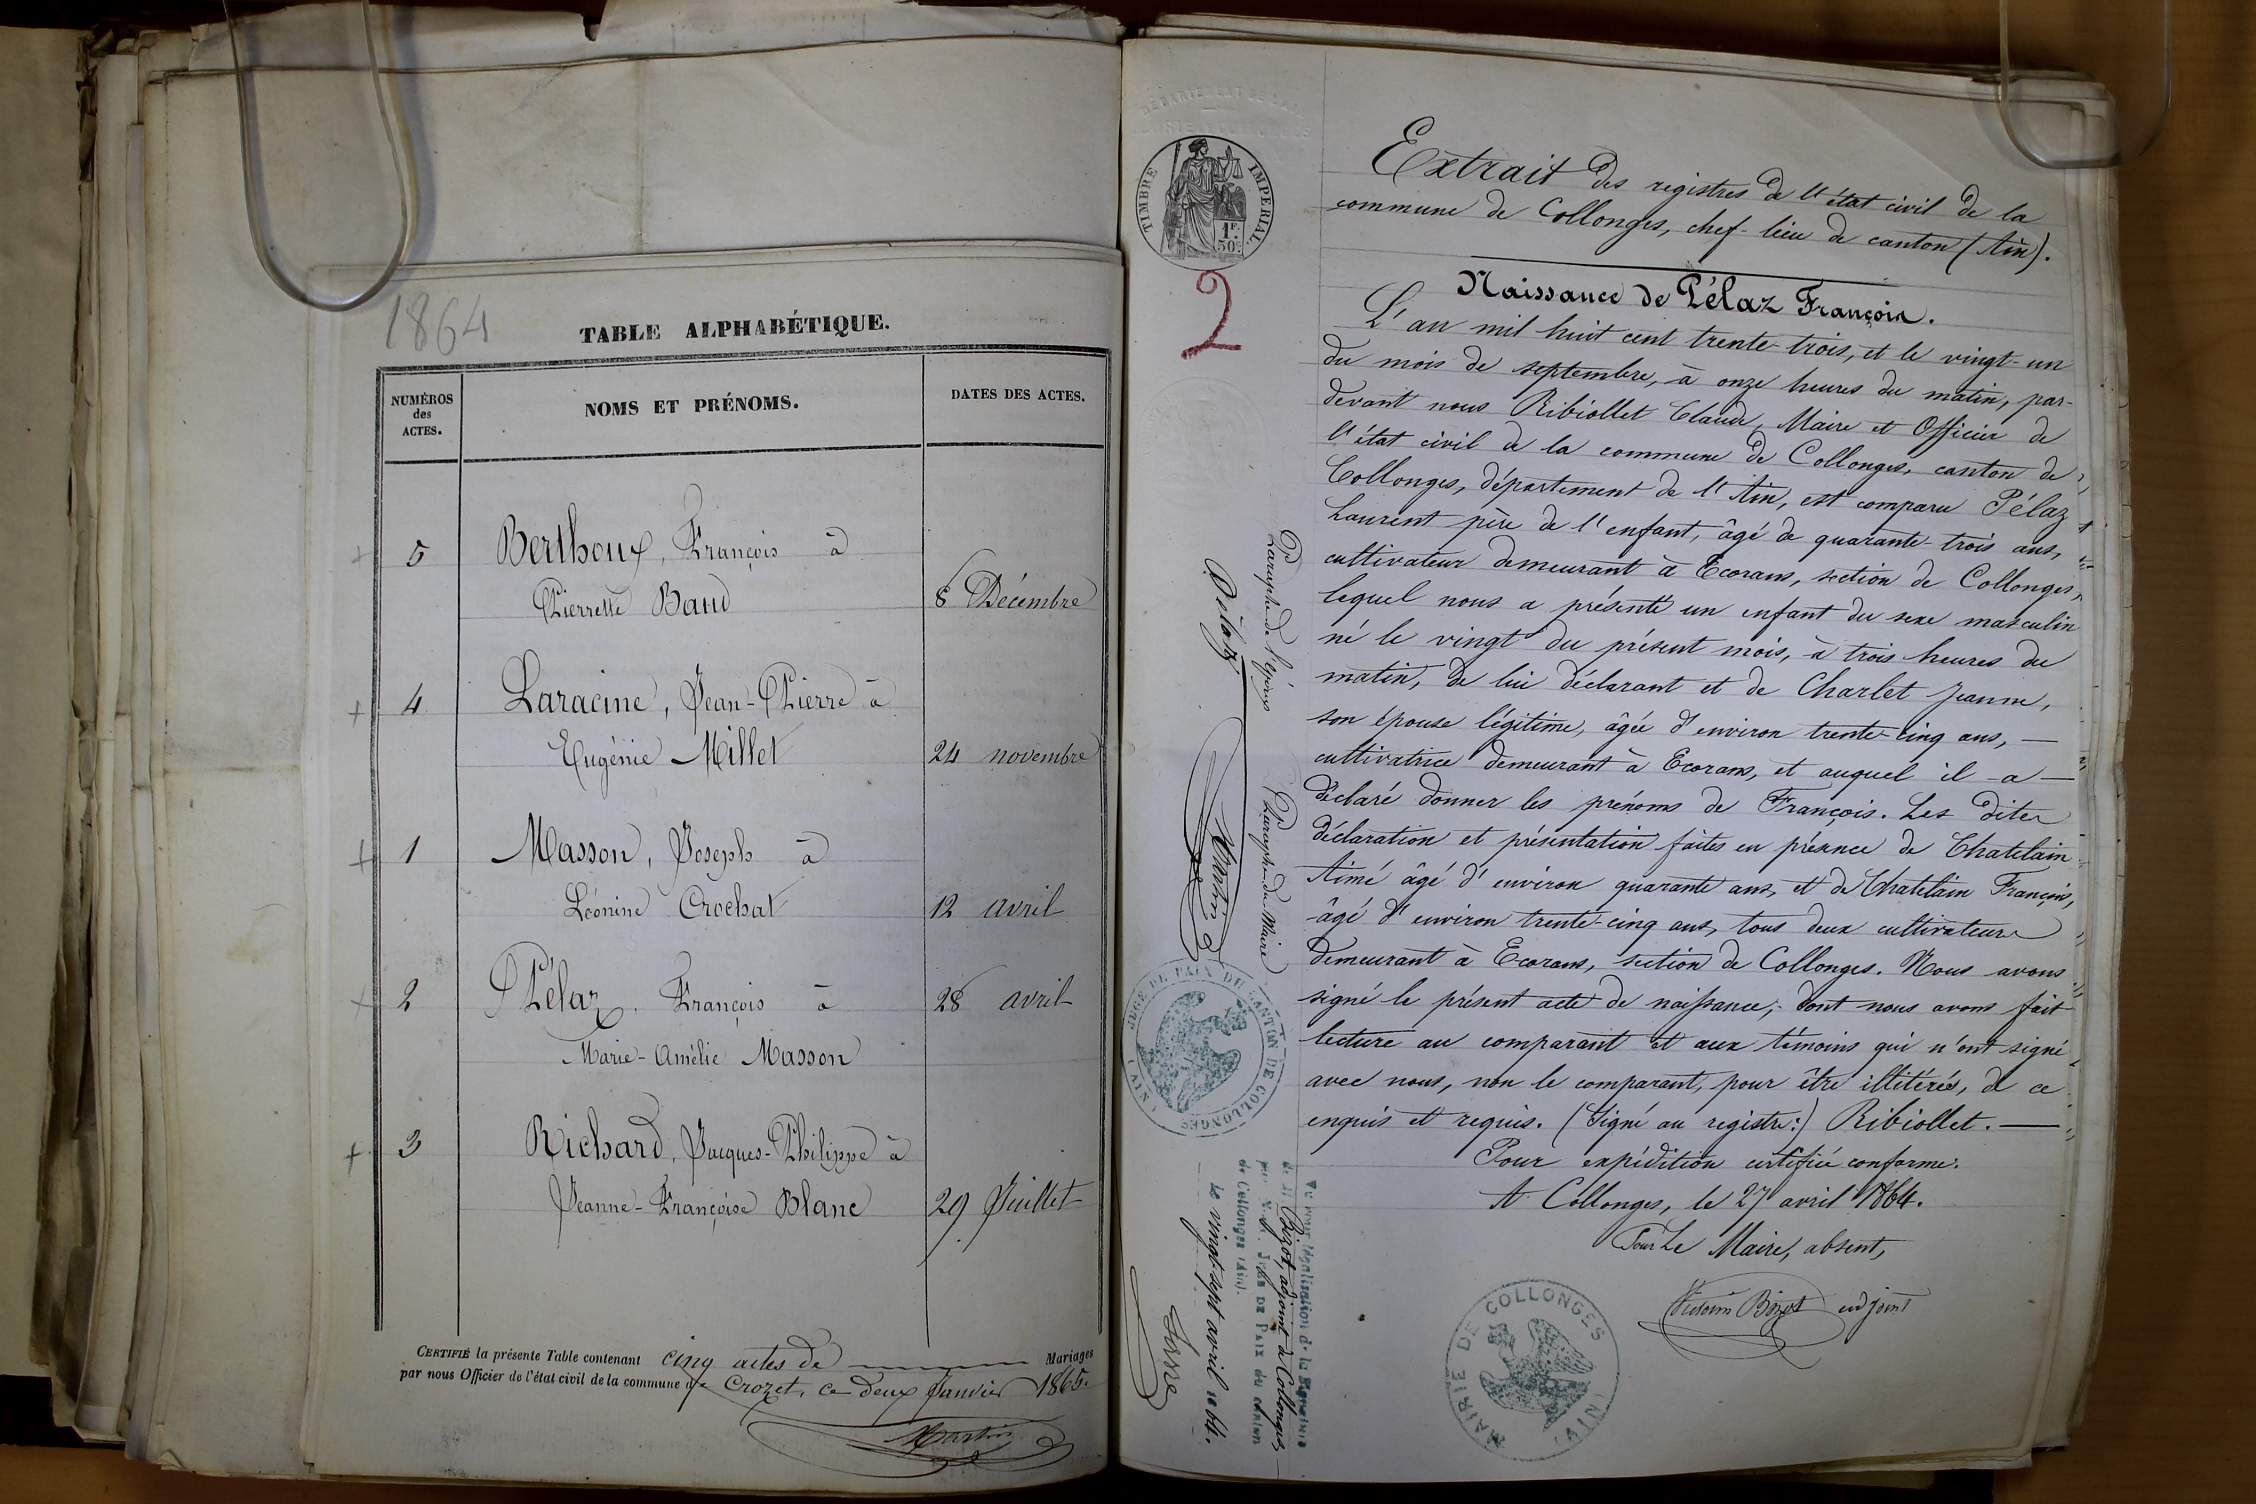 1864
TABLE ALPHABÉTIQUE.
NUMÉROS
des
ACTES.
NOMS ET PRÉNOMS.
DATES DES ACTES.
5 Berthoux, François à
Pierrette Baud 8 Décembre
4 Laracine, Jean-Pierre à
Eugénie Millet 24 novembre
1 Masson, Joseph à
Léonine Crochat 12 avril
2 Pélaz, François à 28 avril
Marie-Amélie Masson
3 Richard, Jacques-Philippe à
Jeanne-Françoise Blanc 29 Juillet
CERTIFIÉ la présente Table contenant cinq actes de Mariages
par nous Officier de l'état civil de la commune de Crozet, ce deux Janvier 1865.
Martin
TIMBRE IMPERIAL.
1F.
50c.
2
Extrait des registres de l'état civil de la
commune de Collonges, chef-lieu de canton (Ain).
Naissance de Pélaz François.
L'an mil huit cent trente-trois, et le vingt-un
du mois de septembre, à onze heures du matin, par-
devant nous Ribiollet Claude, Maire et Officier de
l'état civil de la commune de Collonges, canton de
Collonges, département de l'Ain, est comparu Pélaz
Laurent père de l'enfant, âgé de quarante-trois ans,
cultivateur demeurant à Ecorans, section de Collonges,
lequel nous a présenté un enfant du sexe masculin
né le vingt du présent mois, à trois heures du
matin, de lui déclarant et de Charlet Jeanne,
son épouse légitime, âgée d'environ trente-cinq ans, —
cultivatrice demeurant à Ecorans, et auquel il a —
déclaré donner les prénoms de François. Les dites
déclaration et présentation faites en présence de Chatelain
Aimé âgé d'environ quarante ans, et de Chatelain François,
âgé d'environ trente-cinq ans, tous deux cultivateurs
demeurant à Ecorans, section de Collonges. Nous avons
signé le présent acte de naissance, dont nous avons fait
lecture au comparant et aux témoins qui n'ont signé
avec nous, non le comparant, pour être illitérés, de ce
enquis et requis. (Signé au registre:) Ribiollet. —
Pour expédition certifiée conforme.
A Collonges, le 27 avril 1864.
Pour Le Maire, absent,
Bizot adjoint
MAIRIE DE COLLONGES (AIN)
Paraphe de l'époux
Pélaz
Paraphe du Maire
Martin
JUGE DE PAIX DU CANTON DE COLLONGES (AIN)
Vu pour légalisation de la signature
de M Bizot, adjoint à Collonges,
par N. S. JUGE DE PAIX du canton
de Collonges (Ain).
Le vingt-sept avril 1864.